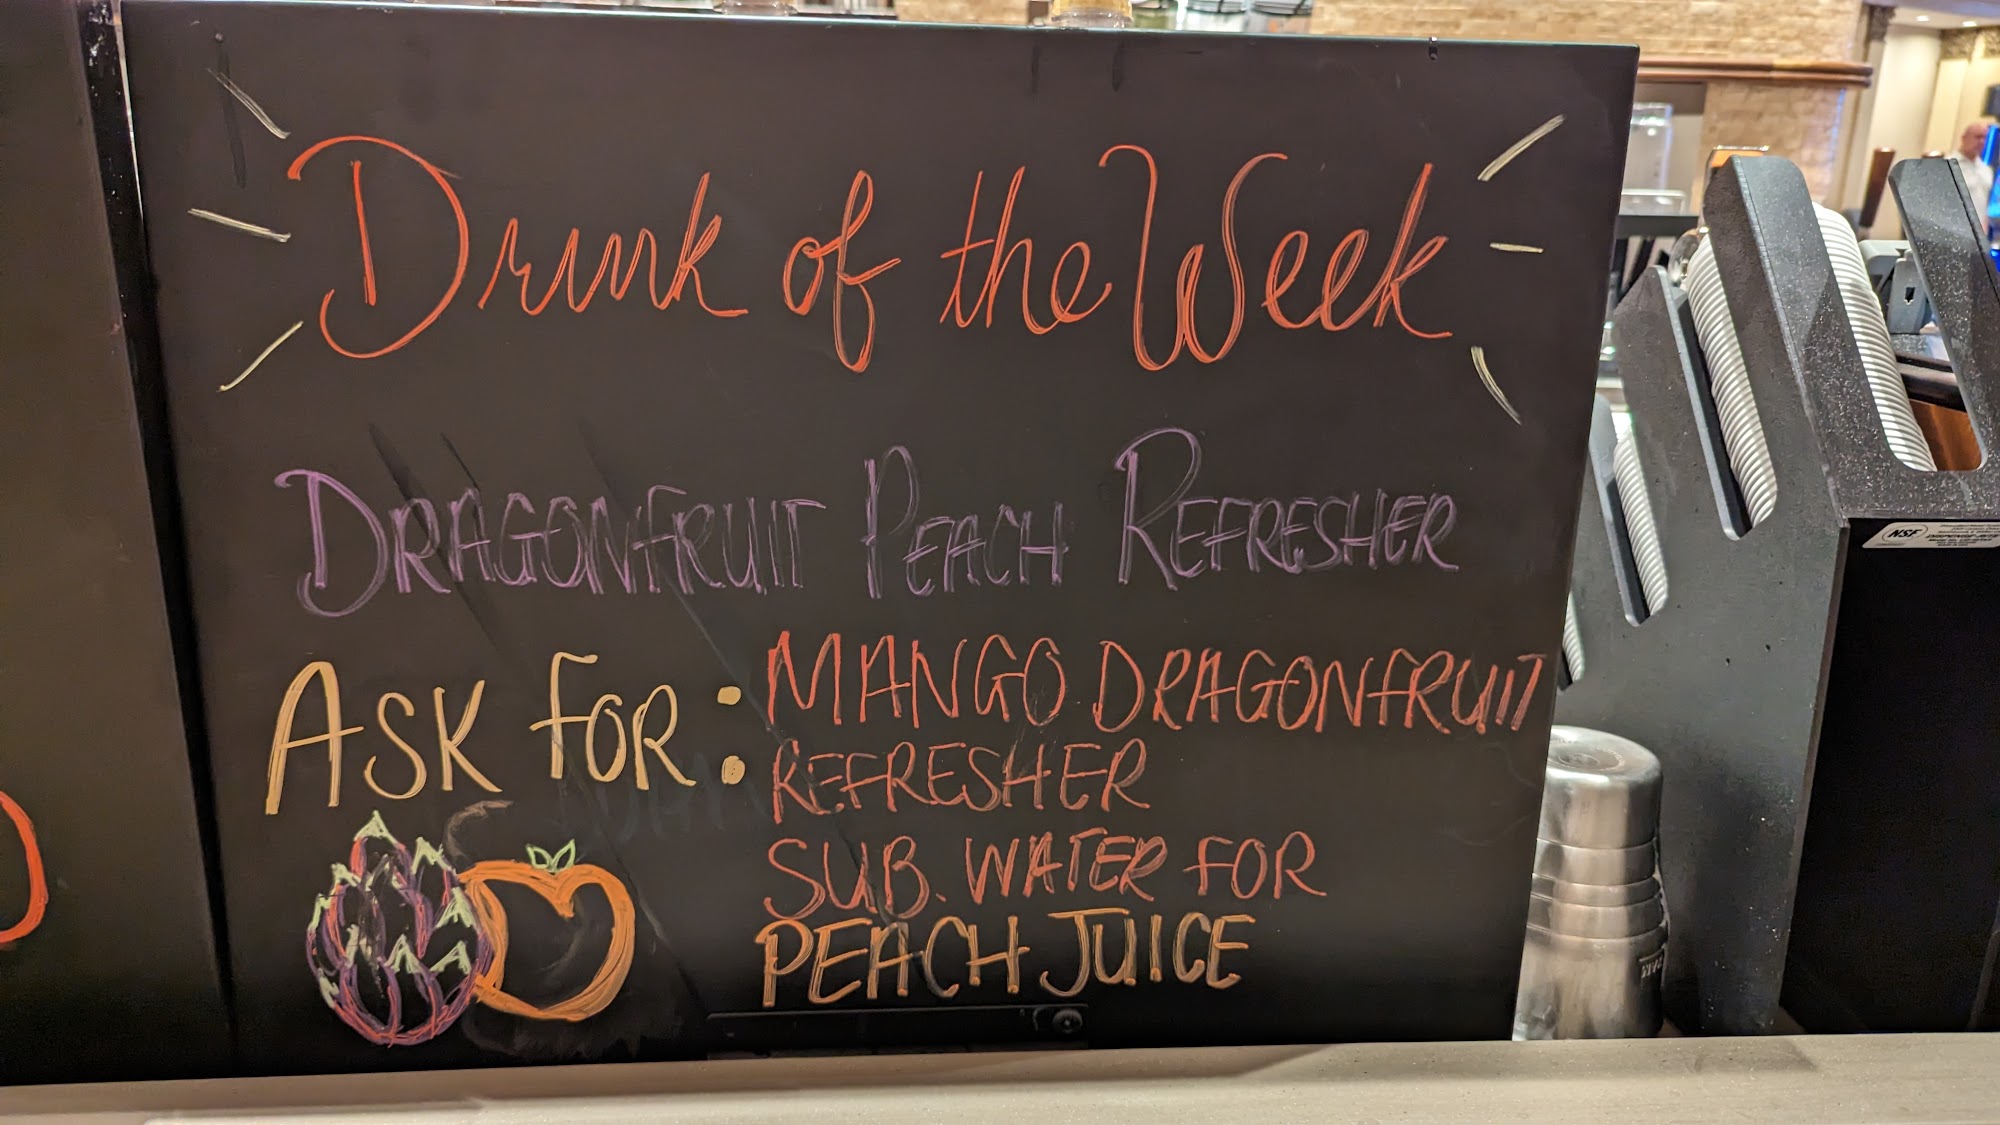 Drink of the Week
DRAGONFRUIT PEACH REFRESHER
ASK FOR: MANGO DRAGONFRUIT
REFRESHER
SUB. WATER FOR
PEACH JUICE
NSF